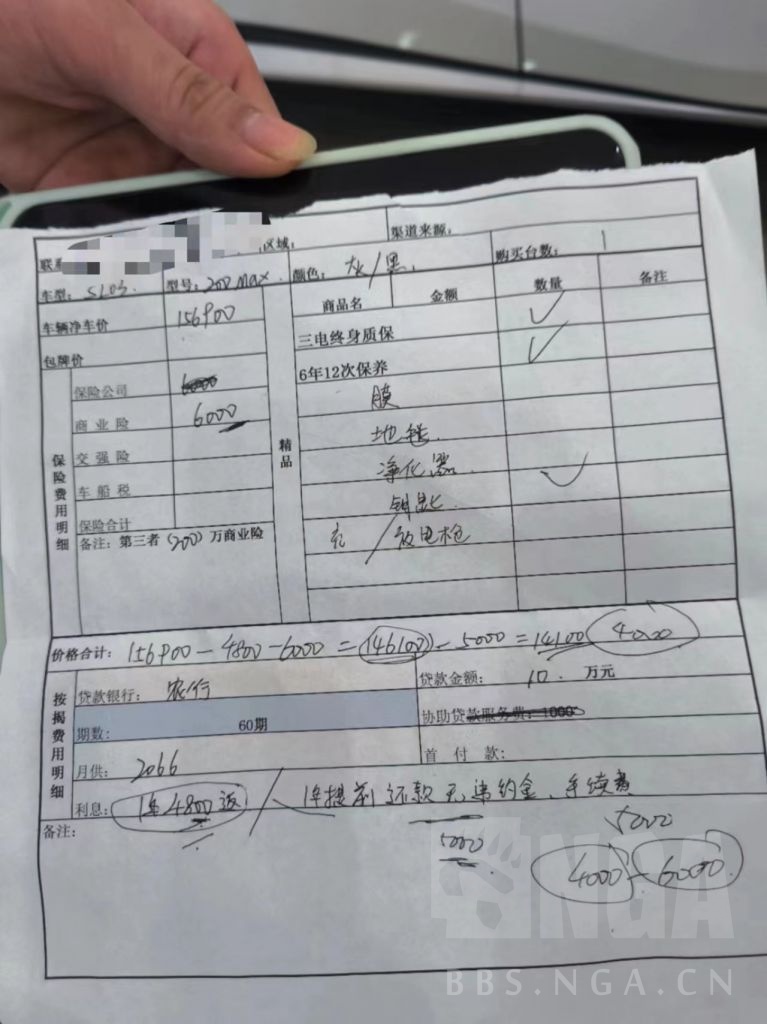 联系 区域： 渠道来源：
车型：SL03. 型号：200 Max. 颜色：灰/黑. 购买台数： 1
车辆净车价 156900 商品名 金额 数量 备注
包牌价 三电终身质保 ✓
保险公司 6000 6年12次保养 ✓
商业险 6000 膜
交强险 地毯.
车船税 净化器. ✓
保险合计 钥匙.
备注：第三者（200）万商业险 充/放电枪
保险费用明细
精品
价格合计：156900-4800-6000=146100-5000=14100 4000
按揭费用明细
贷款银行：农行 贷款金额：10.万元
期数：60期 协助贷款服务费：1000
月供：2066 首付款：
利息：1年4800返 / 1年提前还款无违约金、手续费
备注： 5000 5000
4000-6000
NGA
BBS.NGA.CN